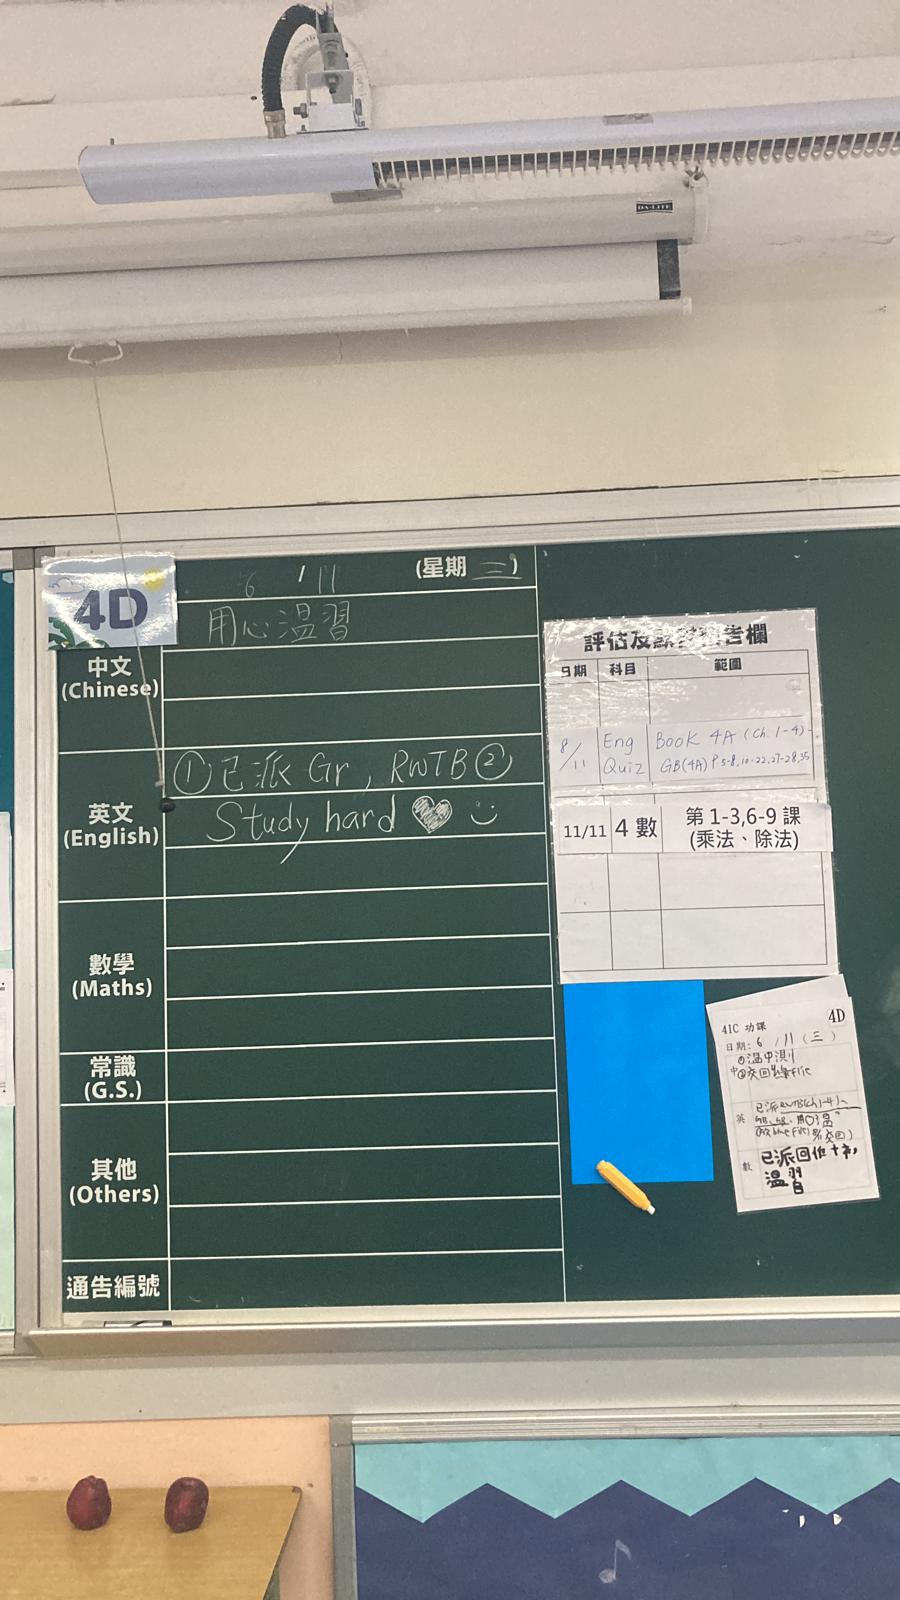 DA-LITE
4D
6 / 11 (星期 三)
用心溫習
中文
(Chinese)
①已派 Gr, RWTB②
英文
(English)
Study hard
數學
(Maths)
常識
(G.S.)
其他
(Others)
通告編號
評估及
告欄
日期 科目 範圍
8/11 Eng Quiz Book 4A (Ch. 1-4)
GB(4A) P.5-8, 10-22, 27-28, 35
11/11 4 數 第 1-3,6-9 課
(乘法、除法)
4D
41C 功課
日期: 6 / 11 (三)
①溫中測
中②交回 file
英 已派RWTB(ch1-4)
數 已派回作
溫習